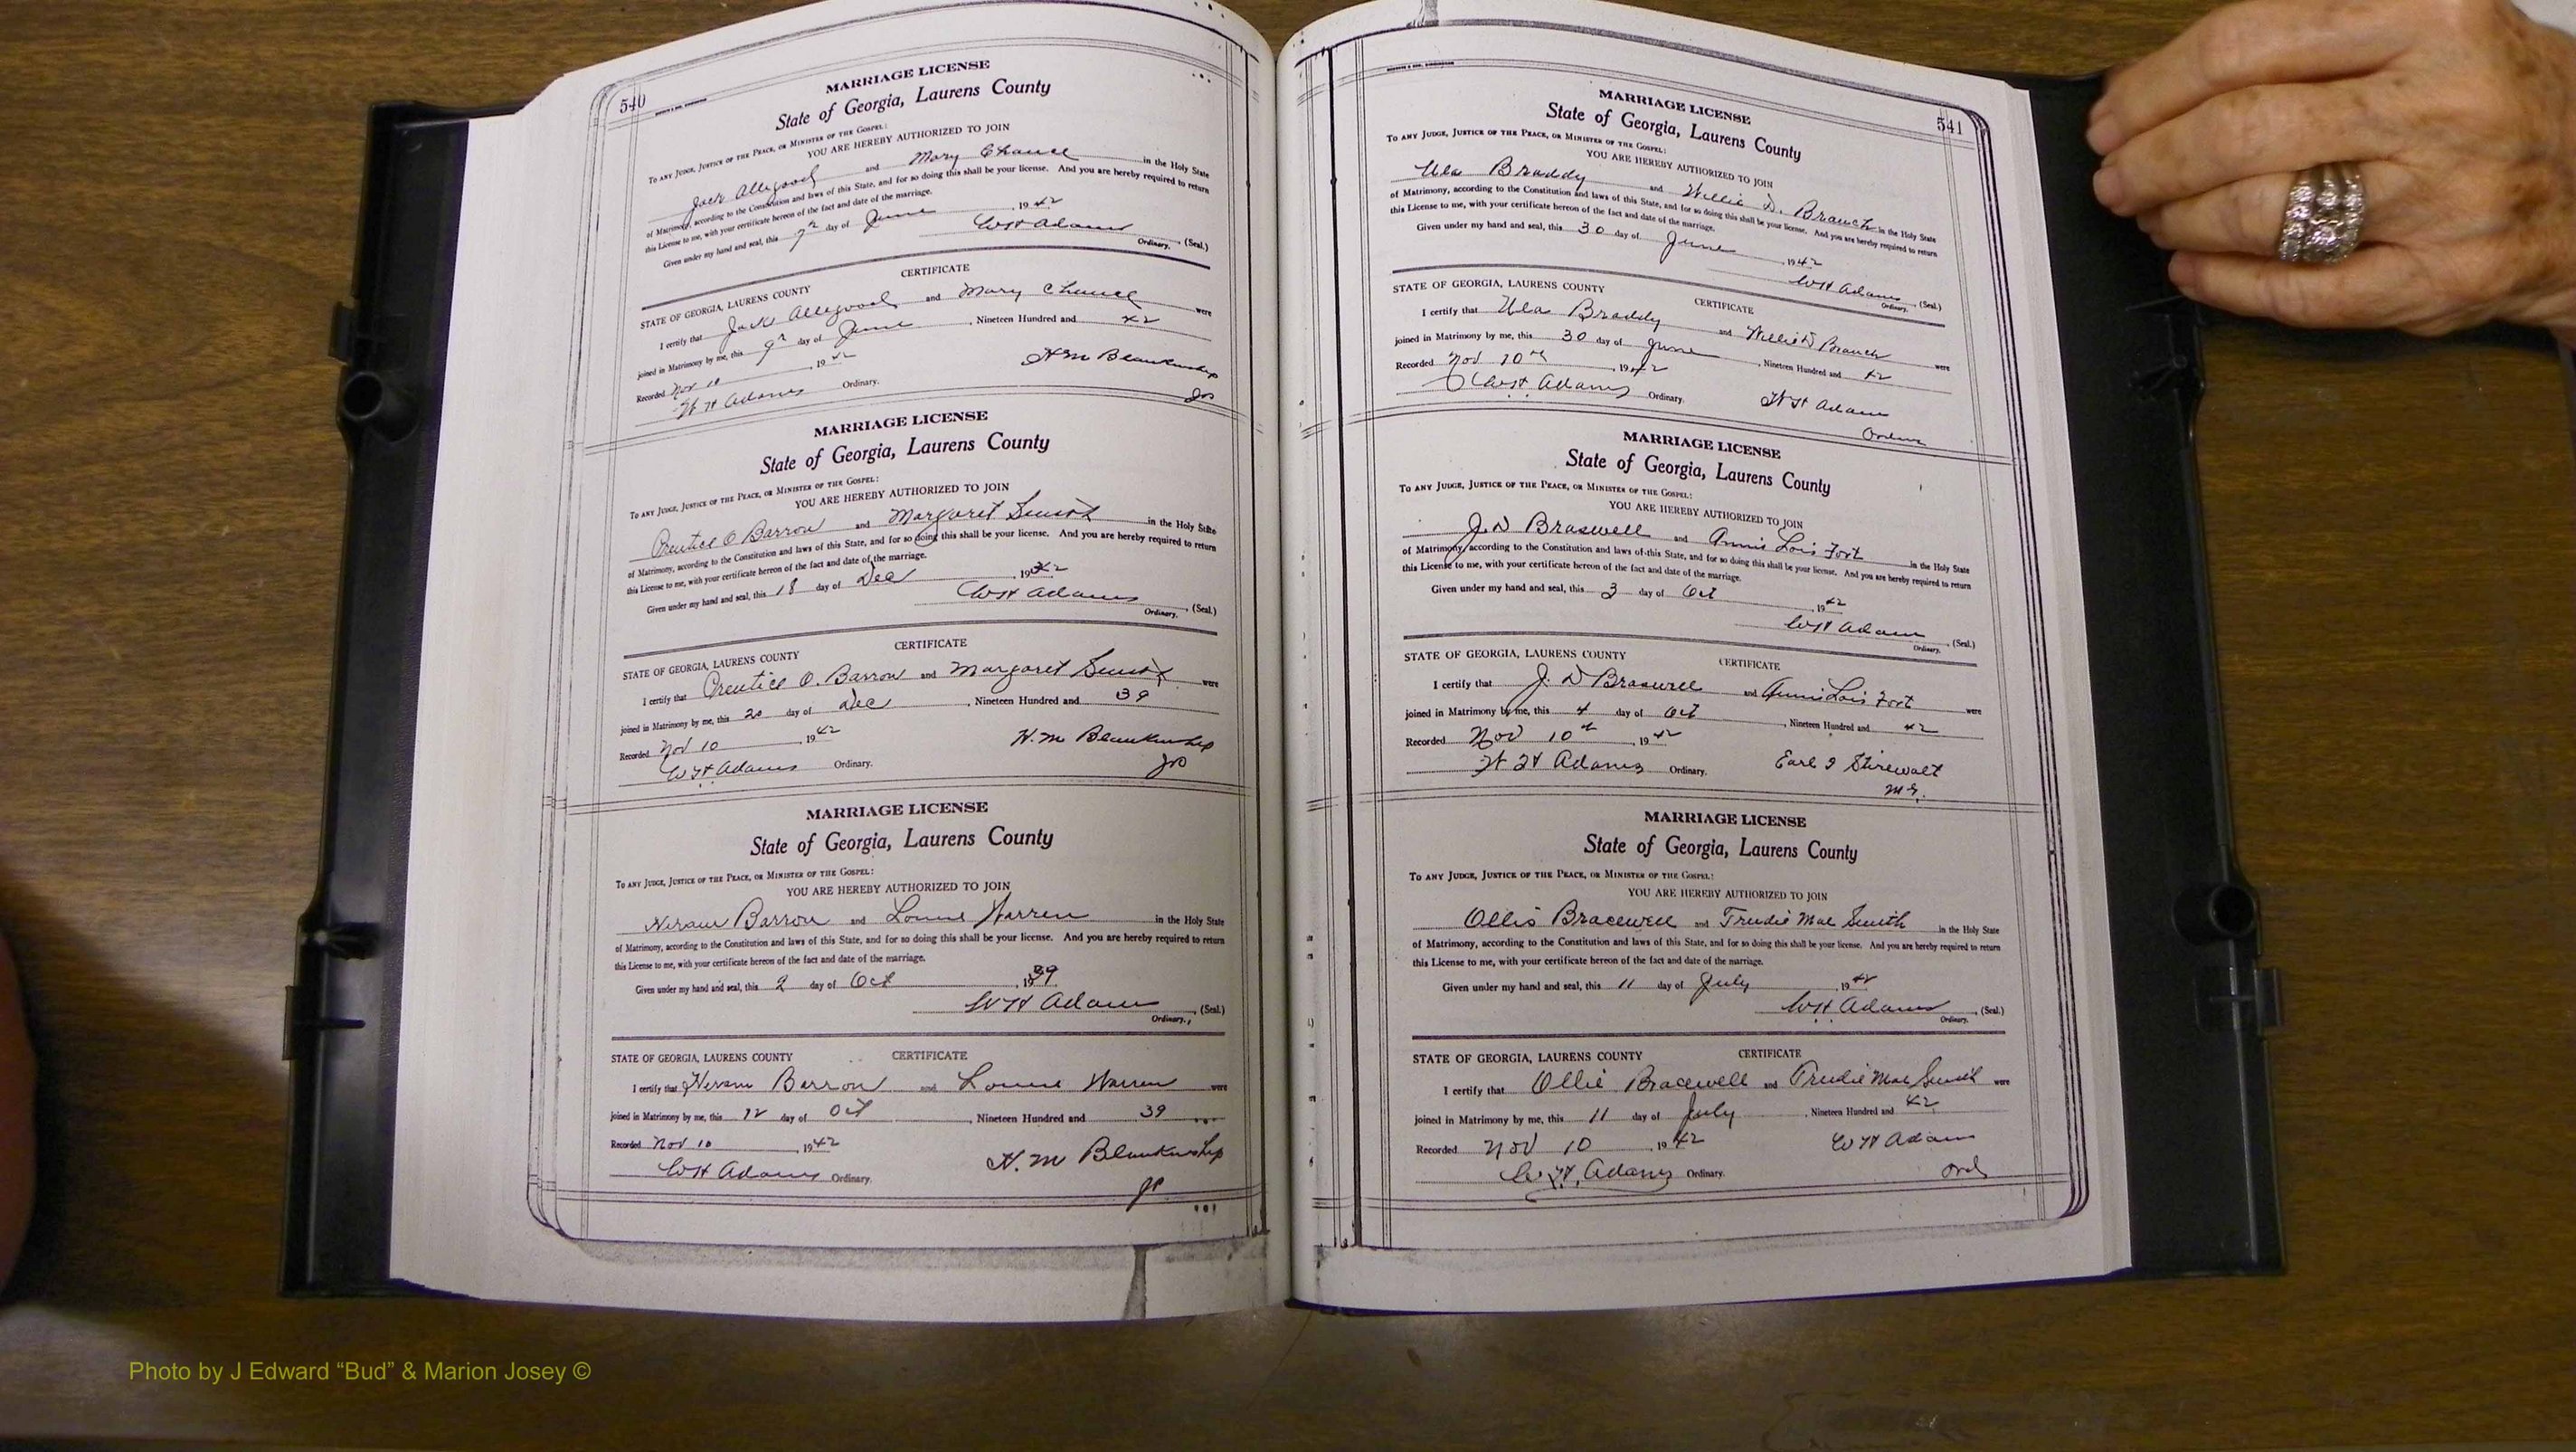 540
MARRIAGE LICENSE
State of Georgia, Laurens County
TO ANY JUDGE, JUSTICE OF THE PEACE, OR MINISTER OF THE GOSPEL:
YOU ARE HEREBY AUTHORIZED TO JOIN
Jack Allegood and Mary Chance in the Holy State
of Matrimony, according to the Constitution and laws of this State, and for so doing this shall be your license. And you are hereby required to return
this License to me, with your certificate hereon of the fact and date of the marriage.
Given under my hand and seal, this 7th day of June, 1942
WH Adams, (Seal.)
Ordinary.
CERTIFICATE
STATE OF GEORGIA, LAURENS COUNTY
I certify that Jack Allegood and Mary Chance were
joined in Matrimony by me, this 9th day of June, Nineteen Hundred and 42
Recorded Nov 10, 1942
H M Blankenship
WH Adams Ordinary.
MARRIAGE LICENSE
State of Georgia, Laurens County
TO ANY JUDGE, JUSTICE OF THE PEACE, OR MINISTER OF THE GOSPEL:
YOU ARE HEREBY AUTHORIZED TO JOIN
Prentice O Barron and Margaret Smith in the Holy State
of Matrimony, according to the Constitution and laws of this State, and for so doing this shall be your license. And you are hereby required to return
this License to me, with your certificate hereon of the fact and date of the marriage.
Given under my hand and seal, this 18 day of Dec, 1942
WH Adams, (Seal.)
Ordinary.
CERTIFICATE
STATE OF GEORGIA, LAURENS COUNTY
I certify that Prentice O. Barron and Margaret Smith were
joined in Matrimony by me, this 20 day of Dec, Nineteen Hundred and 39
Recorded Nov 10, 1942
H. M Blankenship
WH Adams Ordinary. JP
MARRIAGE LICENSE
State of Georgia, Laurens County
TO ANY JUDGE, JUSTICE OF THE PEACE, OR MINISTER OF THE GOSPEL:
YOU ARE HEREBY AUTHORIZED TO JOIN
Barron and Warren in the Holy State
of Matrimony, according to the Constitution and laws of this State, and for so doing this shall be your license. And you are hereby required to return
this License to me, with your certificate hereon of the fact and date of the marriage.
Given under my hand and seal, this 2 day of Oct, 1939
WH Adams, (Seal.)
Ordinary.
STATE OF GEORGIA, LAURENS COUNTY CERTIFICATE
I certify that Barron and Warren were
joined in Matrimony by me, this 12 day of Oct, Nineteen Hundred and 39
Recorded Nov 10, 1942
H. M Blankenship
WH Adams Ordinary.
JP
541
MARRIAGE LICENSE
State of Georgia, Laurens County
TO ANY JUDGE, JUSTICE OF THE PEACE, OR MINISTER OF THE GOSPEL:
YOU ARE HEREBY AUTHORIZED TO JOIN
Ula Braddy and Willie D. Branch in the Holy State
of Matrimony, according to the Constitution and laws of this State, and for so doing this shall be your license. And you are hereby required to return
this License to me, with your certificate hereon of the fact and date of the marriage.
Given under my hand and seal, this 30 day of June, 1942
WH Adams, (Seal.)
Ordinary.
STATE OF GEORGIA, LAURENS COUNTY CERTIFICATE
I certify that Ula Braddy and Willie D Branch were
joined in Matrimony by me, this 30 day of June, Nineteen Hundred and 42
Recorded Nov 10th, 1942
WH Adams Ordinary. WH Adams
MARRIAGE LICENSE
State of Georgia, Laurens County
TO ANY JUDGE, JUSTICE OF THE PEACE, OR MINISTER OF THE GOSPEL:
YOU ARE HEREBY AUTHORIZED TO JOIN
J. D Braswell and Annie Lois Fort in the Holy State
of Matrimony, according to the Constitution and laws of this State, and for so doing this shall be your license. And you are hereby required to return
this License to me, with your certificate hereon of the fact and date of the marriage.
Given under my hand and seal, this 3 day of Oct, 1942
WH Adams, (Seal.)
Ordinary.
STATE OF GEORGIA, LAURENS COUNTY CERTIFICATE
I certify that J. D Braswell and Annie Lois Fort were
joined in Matrimony by me, this 4 day of Oct, Nineteen Hundred and 42
Recorded Nov 10th, 1942
WH Adams Ordinary. Earl Stirewalt
M G.
MARRIAGE LICENSE
State of Georgia, Laurens County
TO ANY JUDGE, JUSTICE OF THE PEACE, OR MINISTER OF THE GOSPEL:
YOU ARE HEREBY AUTHORIZED TO JOIN
Ollis Bracewell and Trudie Mae Smith in the Holy State
of Matrimony, according to the Constitution and laws of this State, and for so doing this shall be your license. And you are hereby required to return
this License to me, with your certificate hereon of the fact and date of the marriage.
Given under my hand and seal, this 11 day of July, 1942
WH Adams, (Seal.)
Ordinary.
STATE OF GEORGIA, LAURENS COUNTY CERTIFICATE
I certify that Ollie Bracewell and Trudie Mae Smith were
joined in Matrimony by me, this 11 day of July, Nineteen Hundred and 42
Recorded Nov 10, 1942 WH Adams
W. H. Adams Ordinary. Ord
Photo by J Edward “Bud” & Marion Josey ©